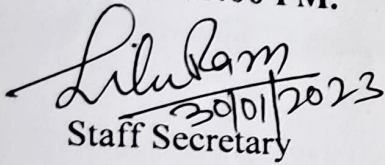 PM.
Lilu Ram
30/01/2023
Staff Secretary